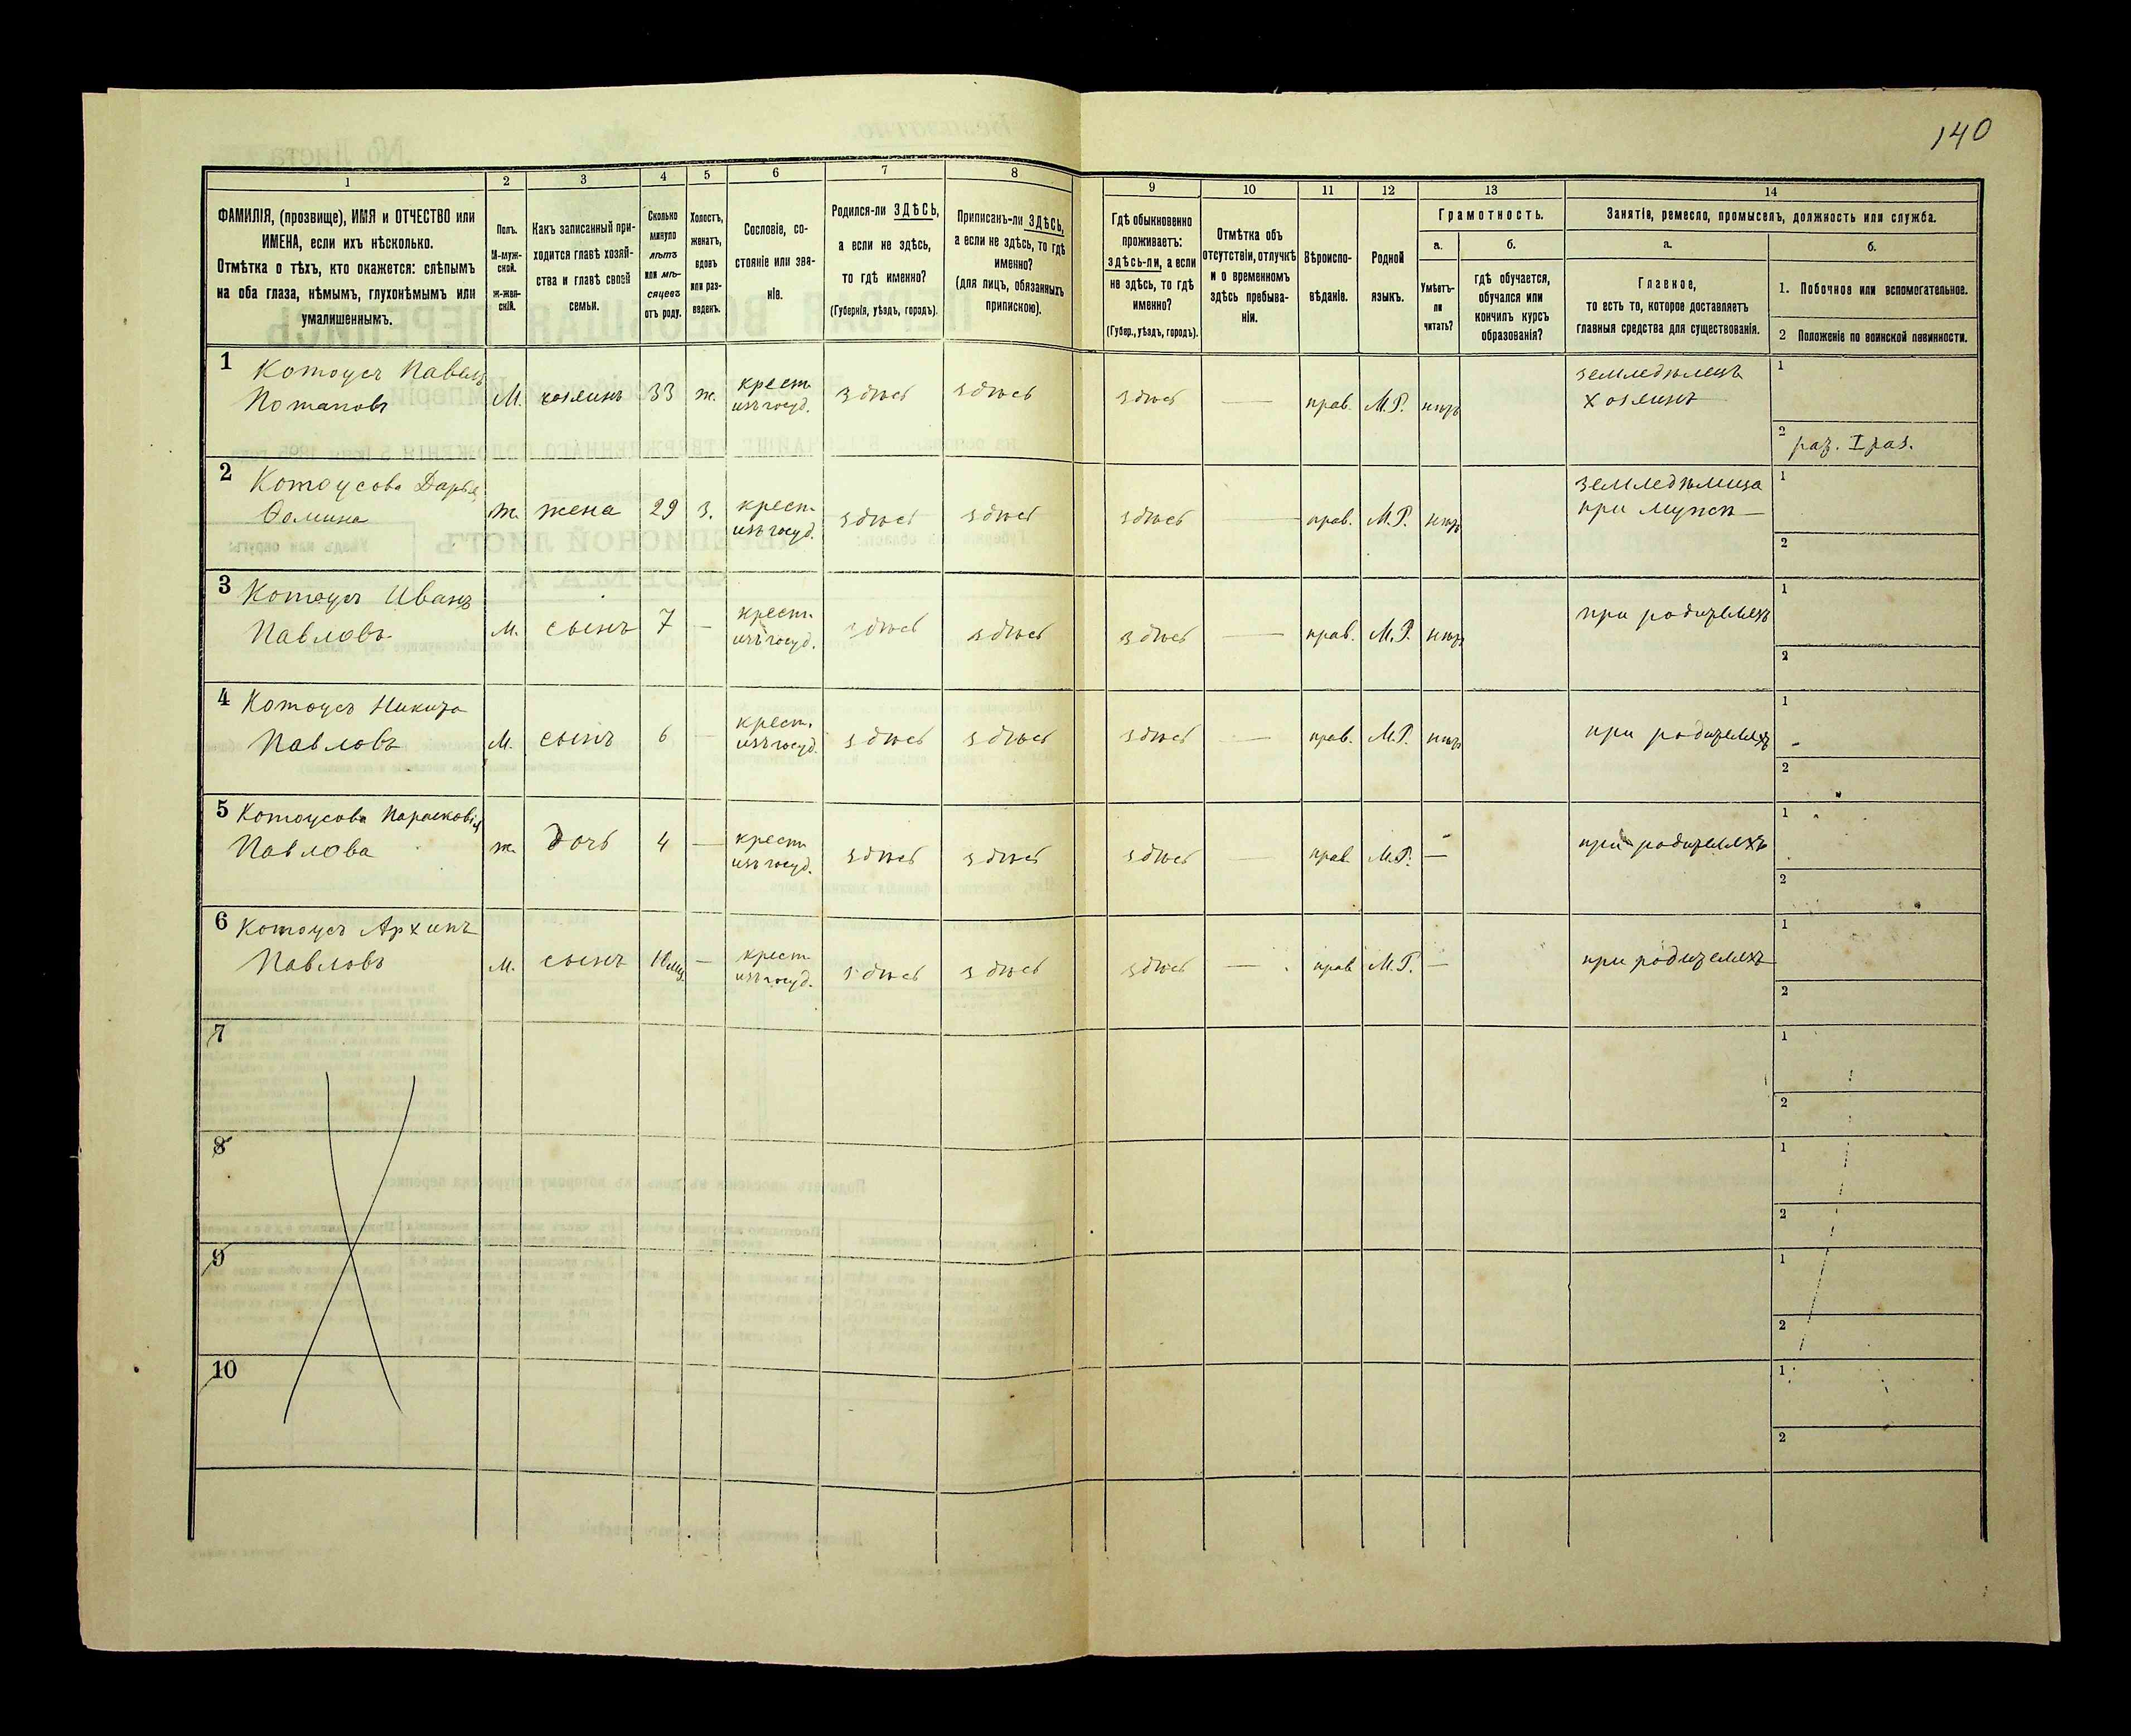 140
1 2 3 4 5 6 7 8 9 10 11 12 13 14
ФАМИЛІЯ, (прозвище), ИМЯ и ОТЧЕСТВО или
ИМЕНА, если ихъ нѣсколько.
Отмѣтка о тѣхъ, кто окажется: слѣпымъ
на оба глаза, нѣмымъ, глухонѣмымъ или
умалишеннымъ.
Полъ.
М-муж-
ской.
ж-жен-
скій.
Какъ записанный при-
ходится главѣ хозяй-
ства и главѣ своей
семьи.
Сколько
минуло
лѣтъ
или мѣ-
сяцевъ
отъ роду.
Холостъ,
женатъ,
вдовъ
или раз-
веденъ.
Сословіе, со-
стояніе или зва-
ніе.
Родился-ли ЗДѢСЬ,
а если не здѣсь,
то гдѣ именно?
(Губернія, уѣздъ, городъ).
Приписанъ-ли ЗДѢСЬ,
а если не здѣсь, то гдѣ
именно?
(для лицъ, обязанныхъ
припискою).
Гдѣ обыкновенно
проживаетъ:
здѣсь-ли, а если
не здѣсь, то гдѣ
именно?
(Губер., уѣздъ, городъ).
Отмѣтка объ
отсутствіи, отлучкѣ
и о временномъ
здѣсь пребыва-
ніи.
Вѣроиспо-
вѣданіе.
Родной
языкъ.
Грамотность.
а.
Умѣетъ-
ли
читать?
б.
гдѣ обучается,
обучался или
кончилъ курсъ
образованія?
Занятіе, ремесло, промыселъ, должность или служба.
а.
Главное,
то есть то, которое доставляетъ
главныя средства для существованія.
б.
1. Побочное или вспомогательное.
2 Положеніе по воинской повинности.
1 Котоусъ Павелъ
Потаповъ М. хозяинъ 33 ж. крест. изъ госуд. здѣсь здѣсь здѣсь — прав. М.Р. нѣтъ
земледѣлецъ
хозяинъ
1
2 рат. I раз.
2 Котоусова Дарья
Ѳомина ж. жена 29 з. крест. изъ госуд. здѣсь здѣсь здѣсь — прав. М.Р. нѣтъ
земледѣлица
при мужѣ —
1
2
3 Котоусъ Иванъ
Павловъ м. сынъ 7 — крест. изъ госуд. здѣсь здѣсь здѣсь — прав. М.Р. нѣтъ
при родителяхъ
1
2
4 Котоусъ Никита
Павловъ М. сынъ 6 — крест. изъ госуд. здѣсь здѣсь здѣсь — прав. М.Р. нѣтъ
при родителяхъ
1
2
5 Котоусова Парасковія
Павлова ж. дочь 4 — крест. изъ госуд. здѣсь здѣсь здѣсь — прав. М.Р. —
при родителяхъ
1
2
6 Котоусъ Архипъ
Павловъ м. сынъ — крест. изъ госуд. здѣсь здѣсь здѣсь — прав. М.Р. —
при родителяхъ
1
2
7
1
2
8
1
2
9
1
2
10
1
2